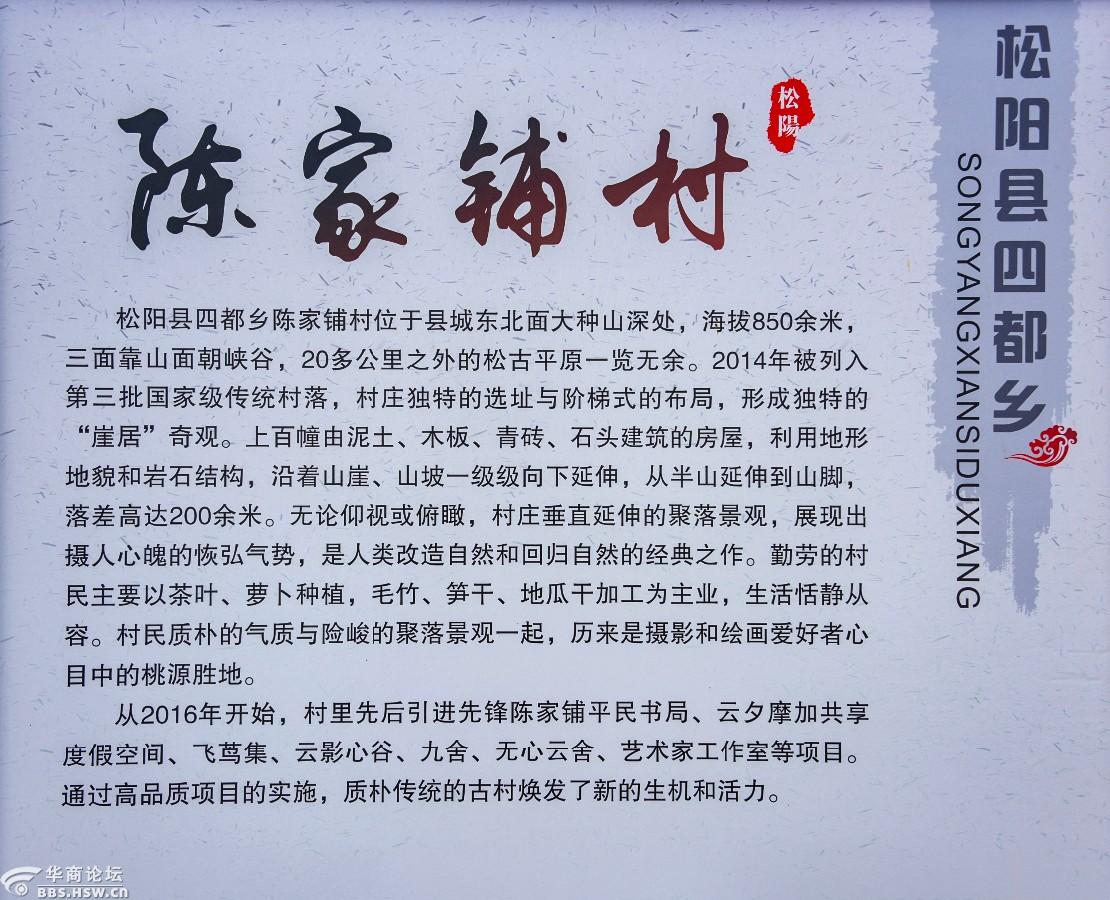 陈家铺村
松陽
松阳县四都乡
SONGYANGXIANSIDUXIANG
松阳县四都乡陈家铺村位于县城东北面大种山深处，海拔850余米，
三面靠山面朝峡谷，20多公里之外的松古平原一览无余。2014年被列入
第三批国家级传统村落，村庄独特的选址与阶梯式的布局，形成独特的
“崖居”奇观。上百幢由泥土、木板、青砖、石头建筑的房屋，利用地形
地貌和岩石结构，沿着山崖、山坡一级级向下延伸，从半山延伸到山脚，
落差高达200余米。无论仰视或俯瞰，村庄垂直延伸的聚落景观，展现出
摄人心魄的恢弘气势，是人类改造自然和回归自然的经典之作。勤劳的村
民主要以茶叶、萝卜种植，毛竹、笋干、地瓜干加工为主业，生活恬静从
容。村民质朴的气质与险峻的聚落景观一起，历来是摄影和绘画爱好者心
目中的桃源胜地。
从2016年开始，村里先后引进先锋陈家铺平民书局、云夕摩加共享
度假空间、飞茑集、云影心谷、九舍、无心云舍、艺术家工作室等项目。
通过高品质项目的实施，质朴传统的古村焕发了新的生机和活力。
华商论坛
BBS.HSW.CN